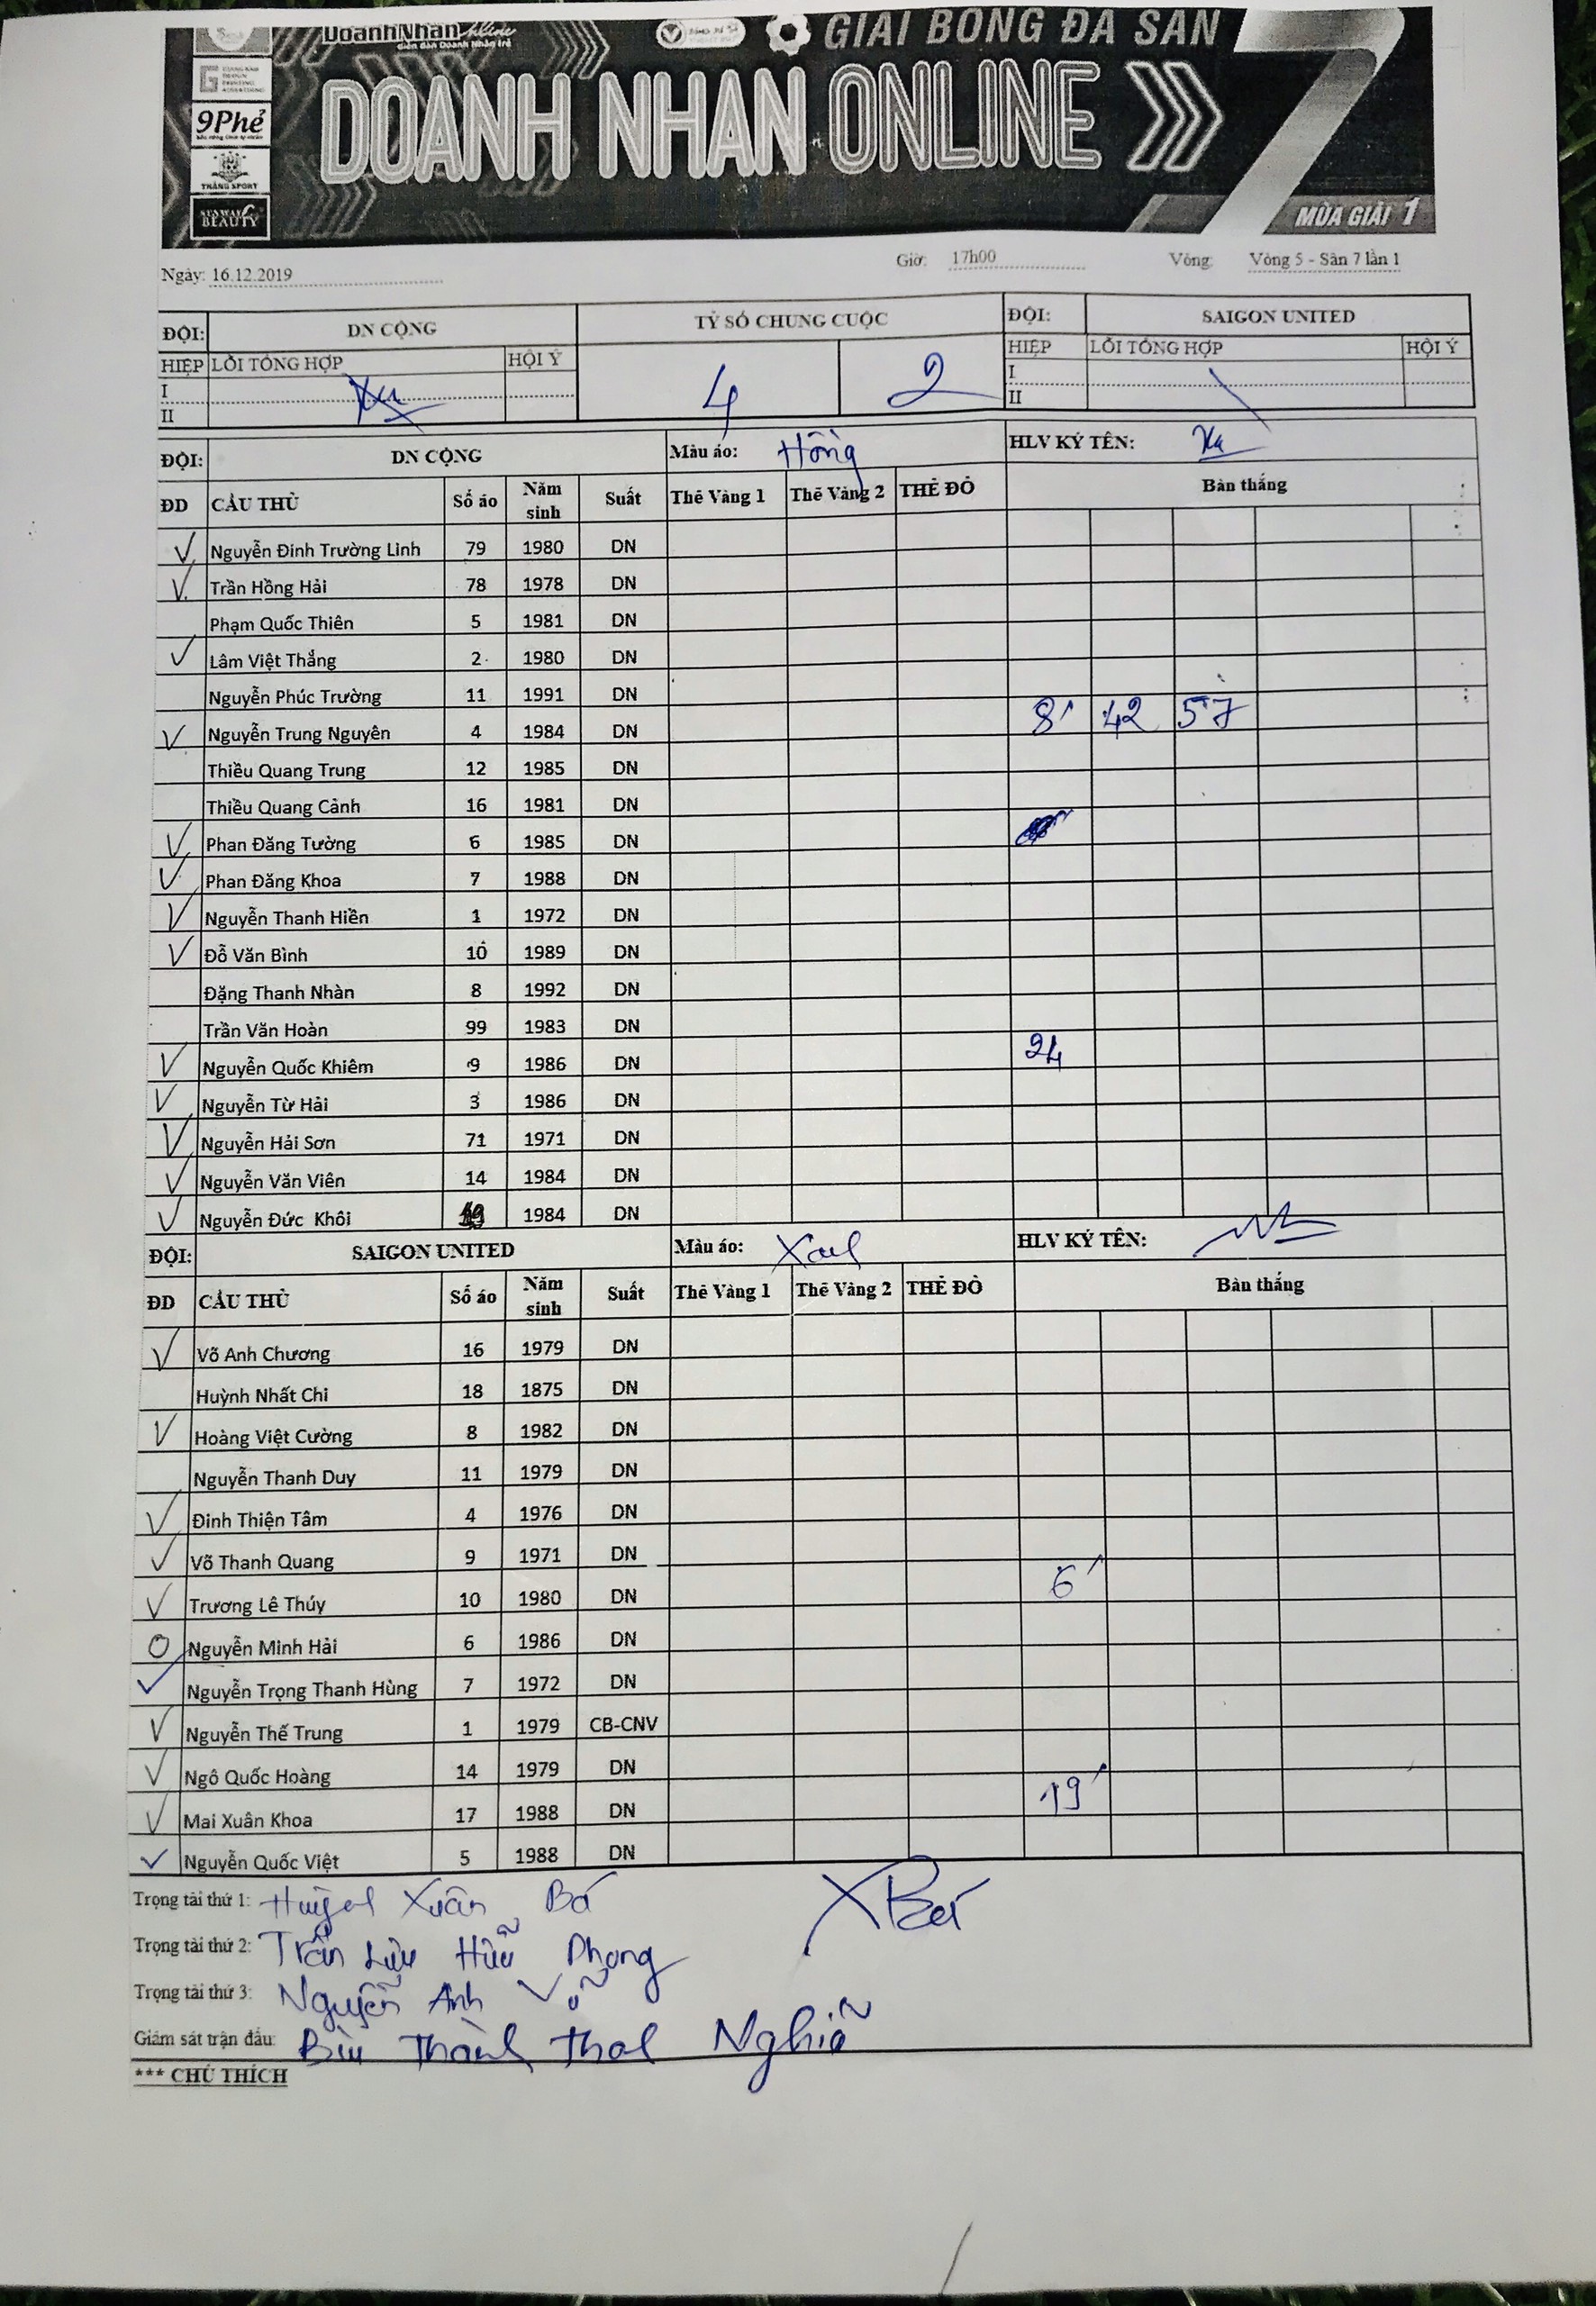 DoanhNhan Online
diễn đàn Doanh Nhân trẻ
GIẢI BÓNG ĐÁ SÂN 7
9Phẻ
DOANH NHÂN ONLINE
THĂNG SPORT
BEAUTY
MÙA GIẢI 1
Ngày: 16.12.2019 Giờ: 17h00 Vòng: Vòng 5 - Sân 7 lần 1
ĐỘI: DN CỘNG TỶ SỐ CHUNG CUỘC ĐỘI: SAIGON UNITED
HIỆP LỖI TỔNG HỢP HỘI Ý 4 2 HIỆP LỖI TỔNG HỢP HỘI Ý
I I
II II
ĐỘI: DN CỘNG Màu áo: Hồng HLV KÝ TÊN:
ĐD CẦU THỦ Số áo Năm sinh Suất Thẻ Vàng 1 Thẻ Vàng 2 THẺ ĐỎ Bàn thắng
Nguyễn Đình Trường Linh 79 1980 DN
Trần Hồng Hải 78 1978 DN
Phạm Quốc Thiên 5 1981 DN
Lâm Việt Thắng 2 1980 DN
Nguyễn Phúc Trường 11 1991 DN
Nguyễn Trung Nguyên 4 1984 DN 8' 42 57
Thiều Quang Trung 12 1985 DN
Thiều Quang Cảnh 16 1981 DN
Phan Đăng Tường 6 1985 DN
Phan Đăng Khoa 7 1988 DN
Nguyễn Thanh Hiền 1 1972 DN
Đỗ Văn Bình 10 1989 DN
Đặng Thanh Nhàn 8 1992 DN
Trần Văn Hoàn 99 1983 DN
Nguyễn Quốc Khiêm 9 1986 DN 24
Nguyễn Từ Hải 3 1986 DN
Nguyễn Hải Sơn 71 1971 DN
Nguyễn Văn Viên 14 1984 DN
Nguyễn Đức Khôi 1984 DN
ĐỘI: SAIGON UNITED Màu áo: Xanh HLV KÝ TÊN:
ĐD CẦU THỦ Số áo Năm sinh Suất Thẻ Vàng 1 Thẻ Vàng 2 THẺ ĐỎ Bàn thắng
Võ Anh Chương 16 1979 DN
Huỳnh Nhất Chi 18 1875 DN
Hoàng Việt Cường 8 1982 DN
Nguyễn Thanh Duy 11 1979 DN
Đinh Thiện Tâm 4 1976 DN
Võ Thanh Quang 9 1971 DN
Trương Lê Thúy 10 1980 DN 6'
Nguyễn Minh Hải 6 1986 DN
Nguyễn Trọng Thanh Hùng 7 1972 DN
Nguyễn Thế Trung 1 1979 CB-CNV
Ngô Quốc Hoàng 14 1979 DN
Mai Xuân Khoa 17 1988 DN 19'
Nguyễn Quốc Việt 5 1988 DN
Trọng tài thứ 1: Huỳnh Xuân Bá XBá
Trọng tài thứ 2: Trần Lưu Hữu Phong
Trọng tài thứ 3: Nguyễn Anh Vũ
Giám sát trận đấu: Bùi Thành Thanh Nghĩa
*** CHÚ THÍCH